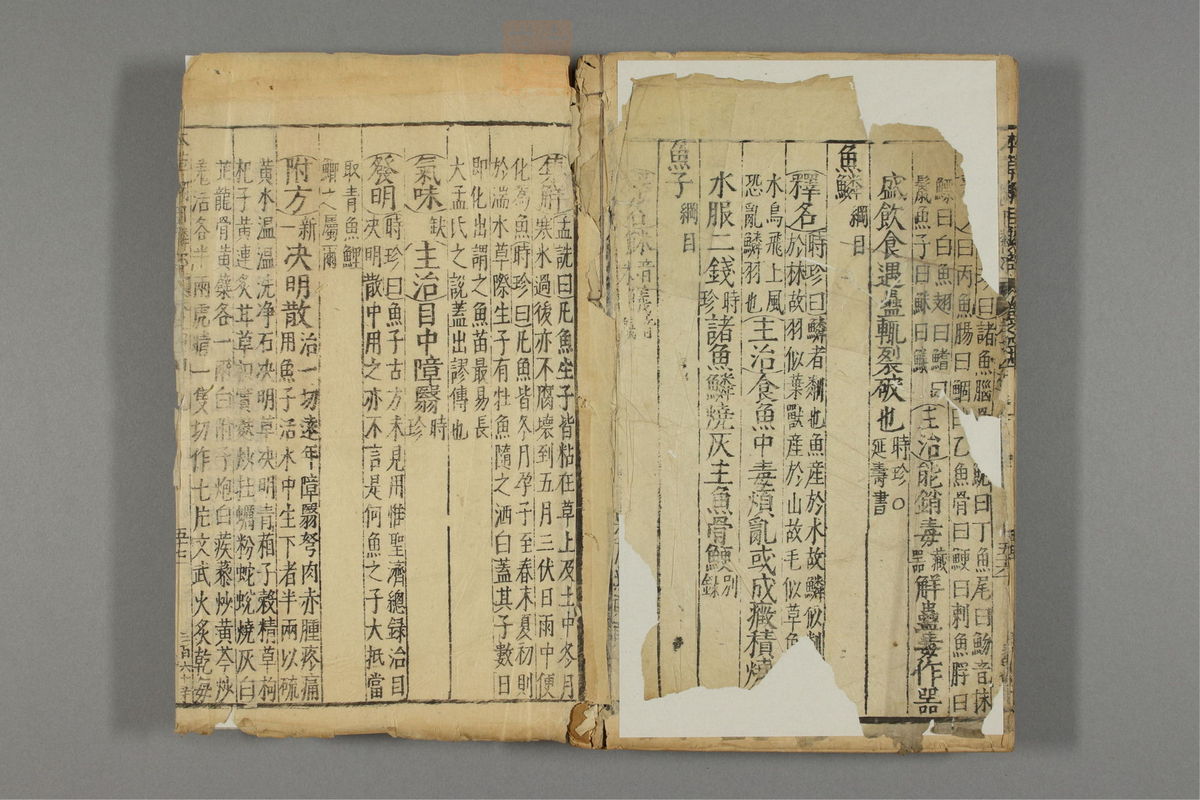 曰諸魚腦
魫曰丁魚尾曰魶音抹
曰丙魚腸曰鯝曰乙魚骨曰鯁曰刺魚脬曰
鰾曰白魚翅曰鰭曰
鬣魚子曰鮇曰鱦
主治能銷毒藏器解蠱毒作器
盛飲食遇蠱輒裂破也時珍○延壽書
魚鱗綱目
釋名時珍曰鱗者粼也魚產於水故鱗似粼
於林故羽似葉獸產於山故毛似草魚
水鳥飛上風
恐亂鱗羽也
主治食魚中毒煩亂或成癥積燒
水服二錢時珍諸魚鱗燒灰主魚骨鯁別錄
魚子綱目
孟詵曰凡魚生子皆粘在草上及土中冬月
寒水過後亦不腐壞到五月三伏日雨中便
化為魚時珍曰凡魚皆冬月孕子至春末夏初則
於湍水草際生子有牡魚隨之洒白蓋其子數日
即化出謂之魚苗最易長
大孟氏之說蓋出謬傳也
氣味缺主治目中障翳時珍
發明時珍曰魚子古方未見用惟聖濟總錄治目
決明散中用之亦不言是何魚之子大抵當
取青魚鯉
鯽之屬爾
附方新一決明散治一切遠年障翳弩肉赤腫疼痛
用魚子活水中生下者半兩以硫
黃水溫溫洗淨石決明草決明青葙子穀精草枸
杞子黃連炙甘草枳實麩炒牡蠣粉蛇蛻燒灰白
芷龍骨黃蘗各一兩白附子炮白蒺藜炒黃芩炒
羌活各半兩虎睛一隻切作七片文武火炙乾每
五十七